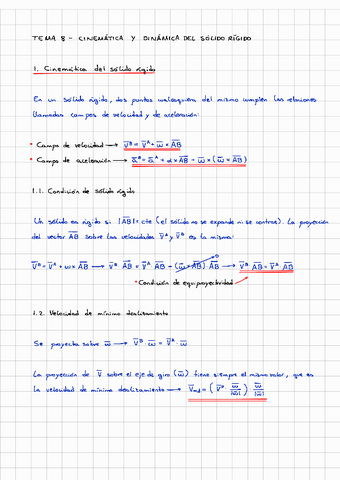 TEMA 8 - CINEMÁTICA Y DINÁMICA DEL SÓLIDO RÍGIDO
1. Cinemática del sólido rígido
En un sólido rígido, dos puntos cualesquiera del mismo cumplen las relaciones
llamadas campos de velocidad y de aceleración:
• Campo de velocidad → V̅ᴮ = V̅ᴬ + ω̅ × A̅B̅
• Campo de aceleración → a̅ᴮ = a̅ᴬ + α × A̅B̅ + ω̅ × (ω̅ × A̅B̅)
1.1. Condición de sólido rígido
Un sólido es rígido si |A̅B̅| = cte (el sólido no se expande ni se contrae). La proyección
del vector A̅B̅ sobre las velocidades V̅ᴬ y V̅ᴮ es la misma:
V̅ᴮ = V̅ᴬ + ω × A̅B̅ → V̅ᴮ · A̅B̅ = V̅ᴬ · A̅B̅ + (ω̅ × A̅B̅) · A̅B̅ → V̅ᴮ · A̅B̅ = V̅ᴬ · A̅B̅
• Condición de equiproyectividad
1.2. Velocidad de mínimo deslizamiento
Se proyecta sobre ω̅ → V̅ᴮ · ω̅ = V̅ᴬ · ω̅
La proyección de V̅ sobre el eje de giro (ω̅) tiene siempre el mismo valor, que es
la velocidad de mínimo deslizamiento → V̅md = (V̅ᴾ · ω̅/|ω̅|) · ω̅/|ω̅|